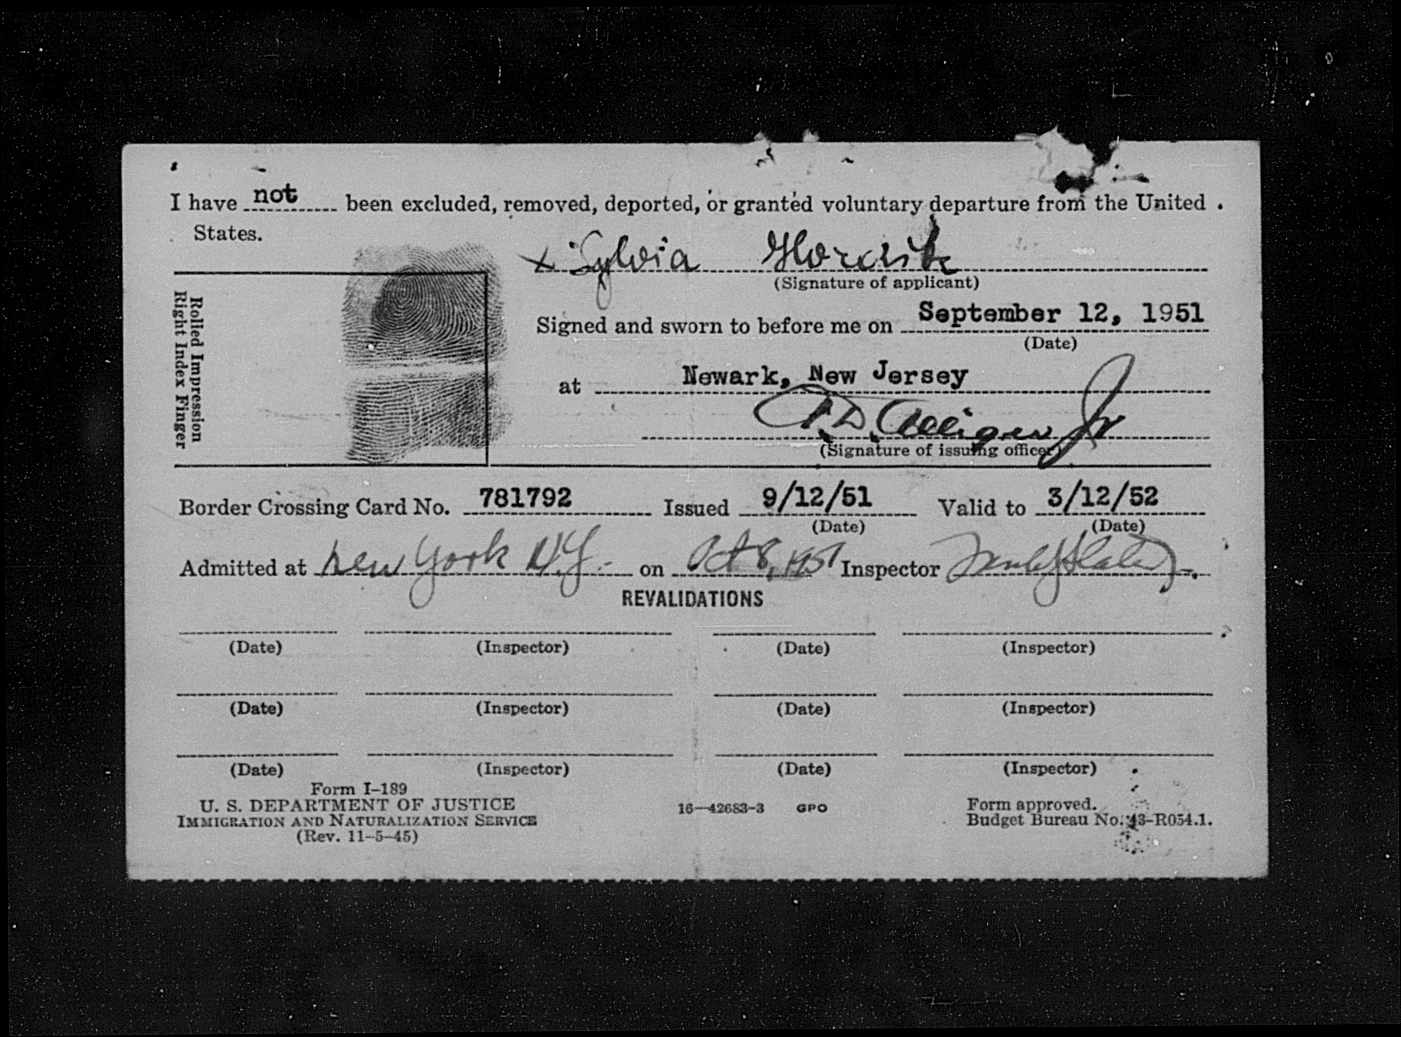 I have not been excluded, removed, deported, or granted voluntary departure from the United
States.
x Sylvia
(Signature of applicant)
Rolled Impression
Right Index Finger
Signed and sworn to before me on September 12, 1951
(Date)
at Newark, New Jersey
Jr
(Signature of issuing officer)
Border Crossing Card No. 781792 Issued 9/12/51 Valid to 3/12/52
(Date) (Date)
Admitted at New York N.Y. on Oct 8, 1951 Inspector
REVALIDATIONS
(Date) (Inspector) (Date) (Inspector)
(Date) (Inspector) (Date) (Inspector)
(Date) (Inspector) (Date) (Inspector)
Form I-189
U. S. DEPARTMENT OF JUSTICE
IMMIGRATION AND NATURALIZATION SERVICE
(Rev. 11-5-45)
16—42683-3 GPO
Form approved.
Budget Bureau No. 43-R054.1.